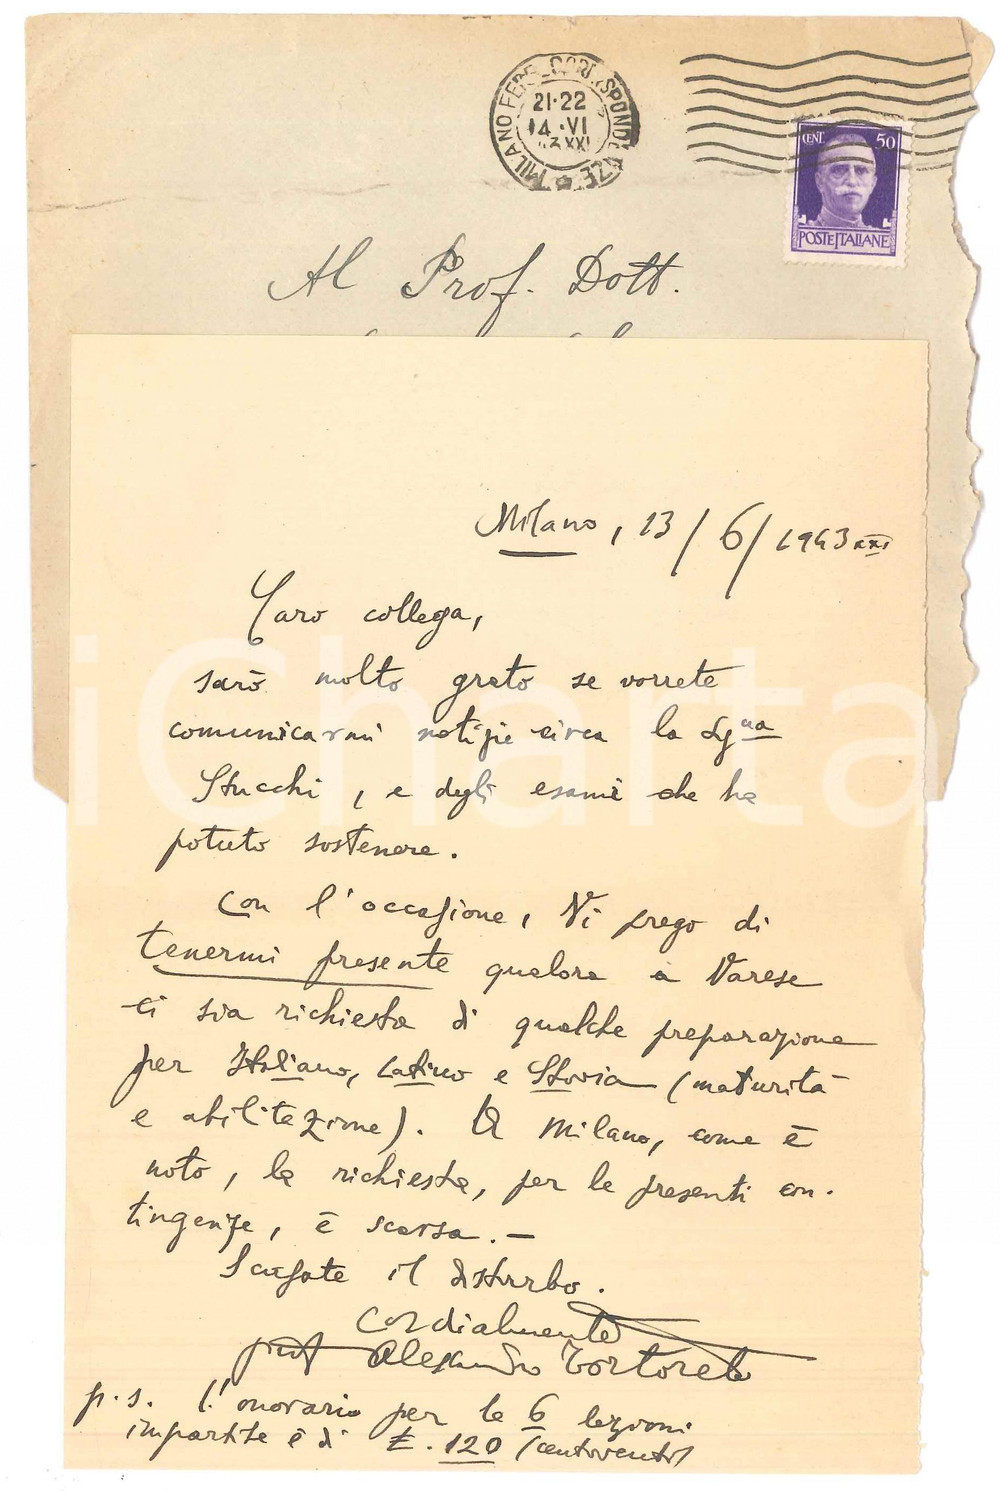 MILANO FERR. CORRISPONDENZE
21·22
14·VI
43XXI
CENT. 50
POSTE ITALIANE
Al Prof. Dott.
Milano, 13/6/1943 XXI
Caro collega,
sarò molto grato se vorrete
comunicarmi notizie circa la Sig.na
Stucchi, e degli esami che ha
potuto sostenere.
Con l'occasione, Vi prego di
tenermi presente qualora a Varese
ci sia richiesta di qualche preparazione
per Italiano, Latino e Storia (maturità
e abilitazione). A Milano, come è
noto, la richiesta, per le presenti con-
tingenze, è scarsa.—
Scusate il disturbo.
Cordialmente
prof Alessandro Tortoreto
p.s. L'onorario per le 6 lezioni
impartite è di £. 120 (centoventi)
iCharta